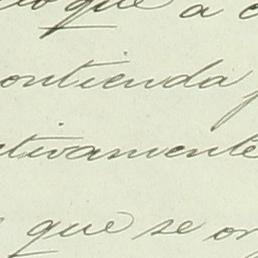 que a
contienda
tivamente
que se